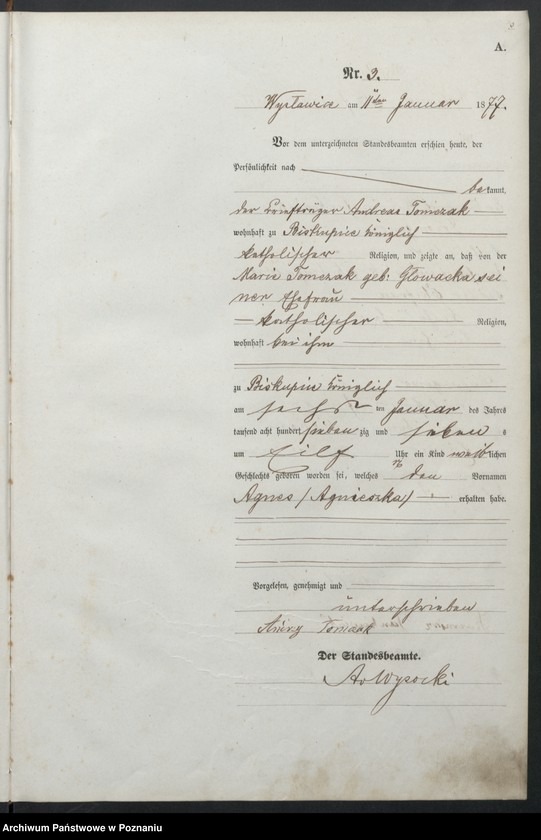 A.
Nr. 3.
Wyslawice am 11ten Januar 1877.
Vor dem unterzeichneten Standesbeamten erschien heute, der
Persönlichkeit nach
bekannt,
der Briefträger Andreas Tomczak
wohnhaft zu Biskupice königlich
katholischer Religion, und zeigte an, daß von der
Marie Tomczak geb: Głowacka sei
ner Ehefrau
katholischer Religion,
wohnhaft bei ihm
zu Biskupice königlich
am sechs ten Januar des Jahres
tausend acht hundert sieben zig und sieben
um Eilf Uhr ein Kind weiblichen
Geschlechts geboren worden sei, welches den Vornamen
Agnes /Agnieszka/ erhalten habe.
Vorgelesen, genehmigt und
unterschrieben
Tomczak
Der Standesbeamte.
Wysocki
Archiwum Państwowe w Poznaniu